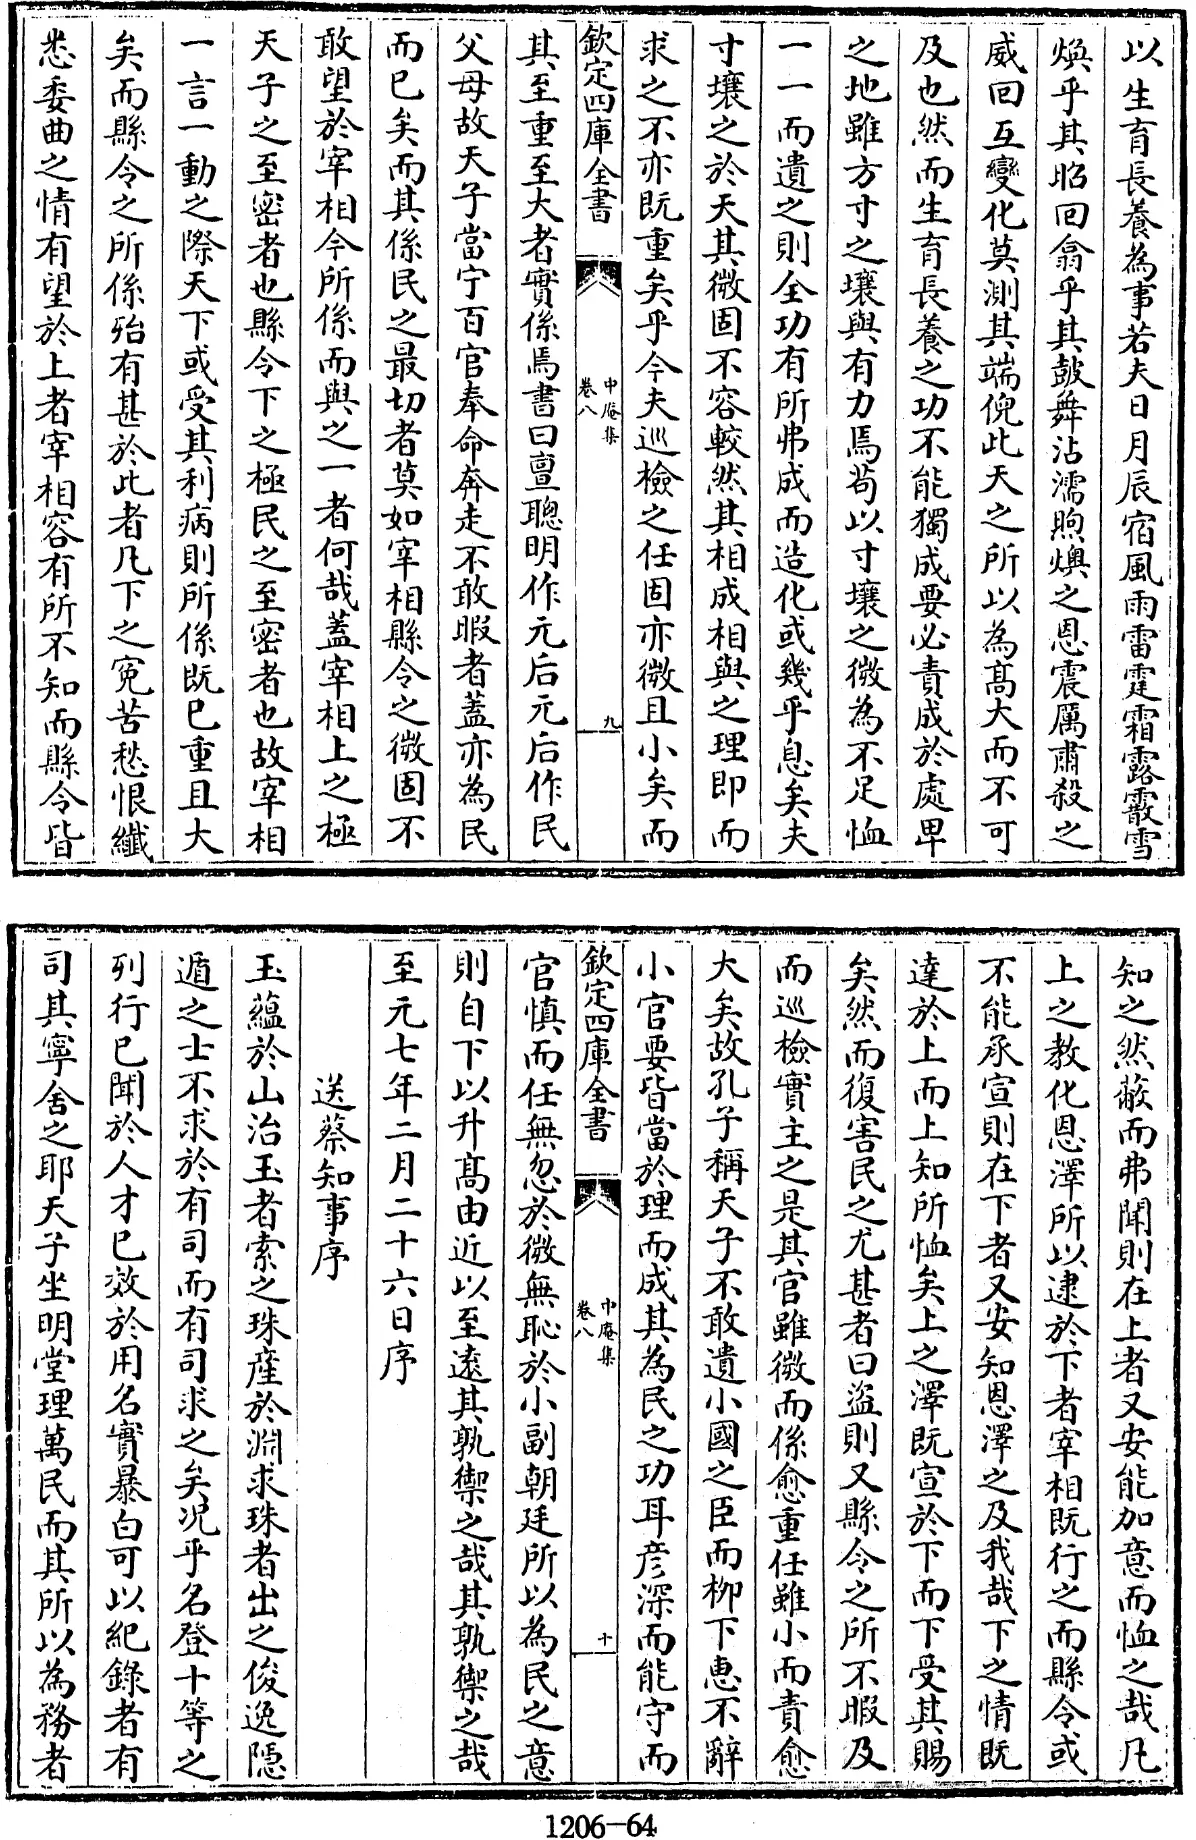 以生育長養為事若夫日月辰宿風雨雷霆霜露霰雪
煥乎其昭回翕乎其鼓舞沾濡煦燠之恩震厲肅殺之
威回互變化莫測其端倪此天之所以為髙大而不可
及也然而生育長養之功不能獨成要必責成於處卑
之地雖方寸之壤與有力焉茍以寸壤之微為不足恤
一一而遺之則全功有所弗成而造化或幾乎息矣夫
寸壤之於天其微固不容較然其相成相與之理即而
求之不亦既重矣乎今夫巡檢之任固亦微且小矣而
欽定四庫全書
中庵集
卷八
九
其至重至大者實係焉書曰亶聰明作元后元后作民
父母故天子當宁百官奉命奔走不敢暇者蓋亦為民
而已矣而其係民之最切者莫如宰相縣令之微固不
敢望於宰相今所係而與之一者何哉蓋宰相上之極
天子之至密者也縣令下之極民之至密者也故宰相
一言一動之際天下或受其利病則所係既已重且大
矣而縣令之所係殆有甚於此者凡下之寃苦愁恨纖
悉委曲之情有望於上者宰相容有所不知而縣令皆
知之然蔽而弗聞則在上者又安能加意而恤之哉凡
上之教化恩澤所以逮於下者宰相既行之而縣令或
不能承宣則在下者又安知恩澤之及我哉下之情既
達於上而上知所恤矣上之澤既宣於下而下受其賜
矣然而復害民之尤甚者曰盜則又縣令之所不暇及
而巡檢實主之是其官雖微而係愈重任雖小而責愈
大矣故孔子稱天子不敢遺小國之臣而柳下惠不辭
小官要皆當於理而成其為民之功耳彦深而能守而
欽定四庫全書
中庵集
卷八
十
官慎而任無忽於微無恥於小副朝廷所以為民之意
則自下以升髙由近以至逺其孰禦之哉其孰禦之哉
至元七年二月二十六日序
送蔡知事序
玉蘊於山治玉者索之珠産於淵求珠者出之俊逸隱
遁之士不求於有司而有司求之矣况乎名登十等之
列行已聞於人才已效於用名實暴白可以紀錄者有
司其寧舍之耶天子坐明堂理萬民而其所以為務者
1206-64